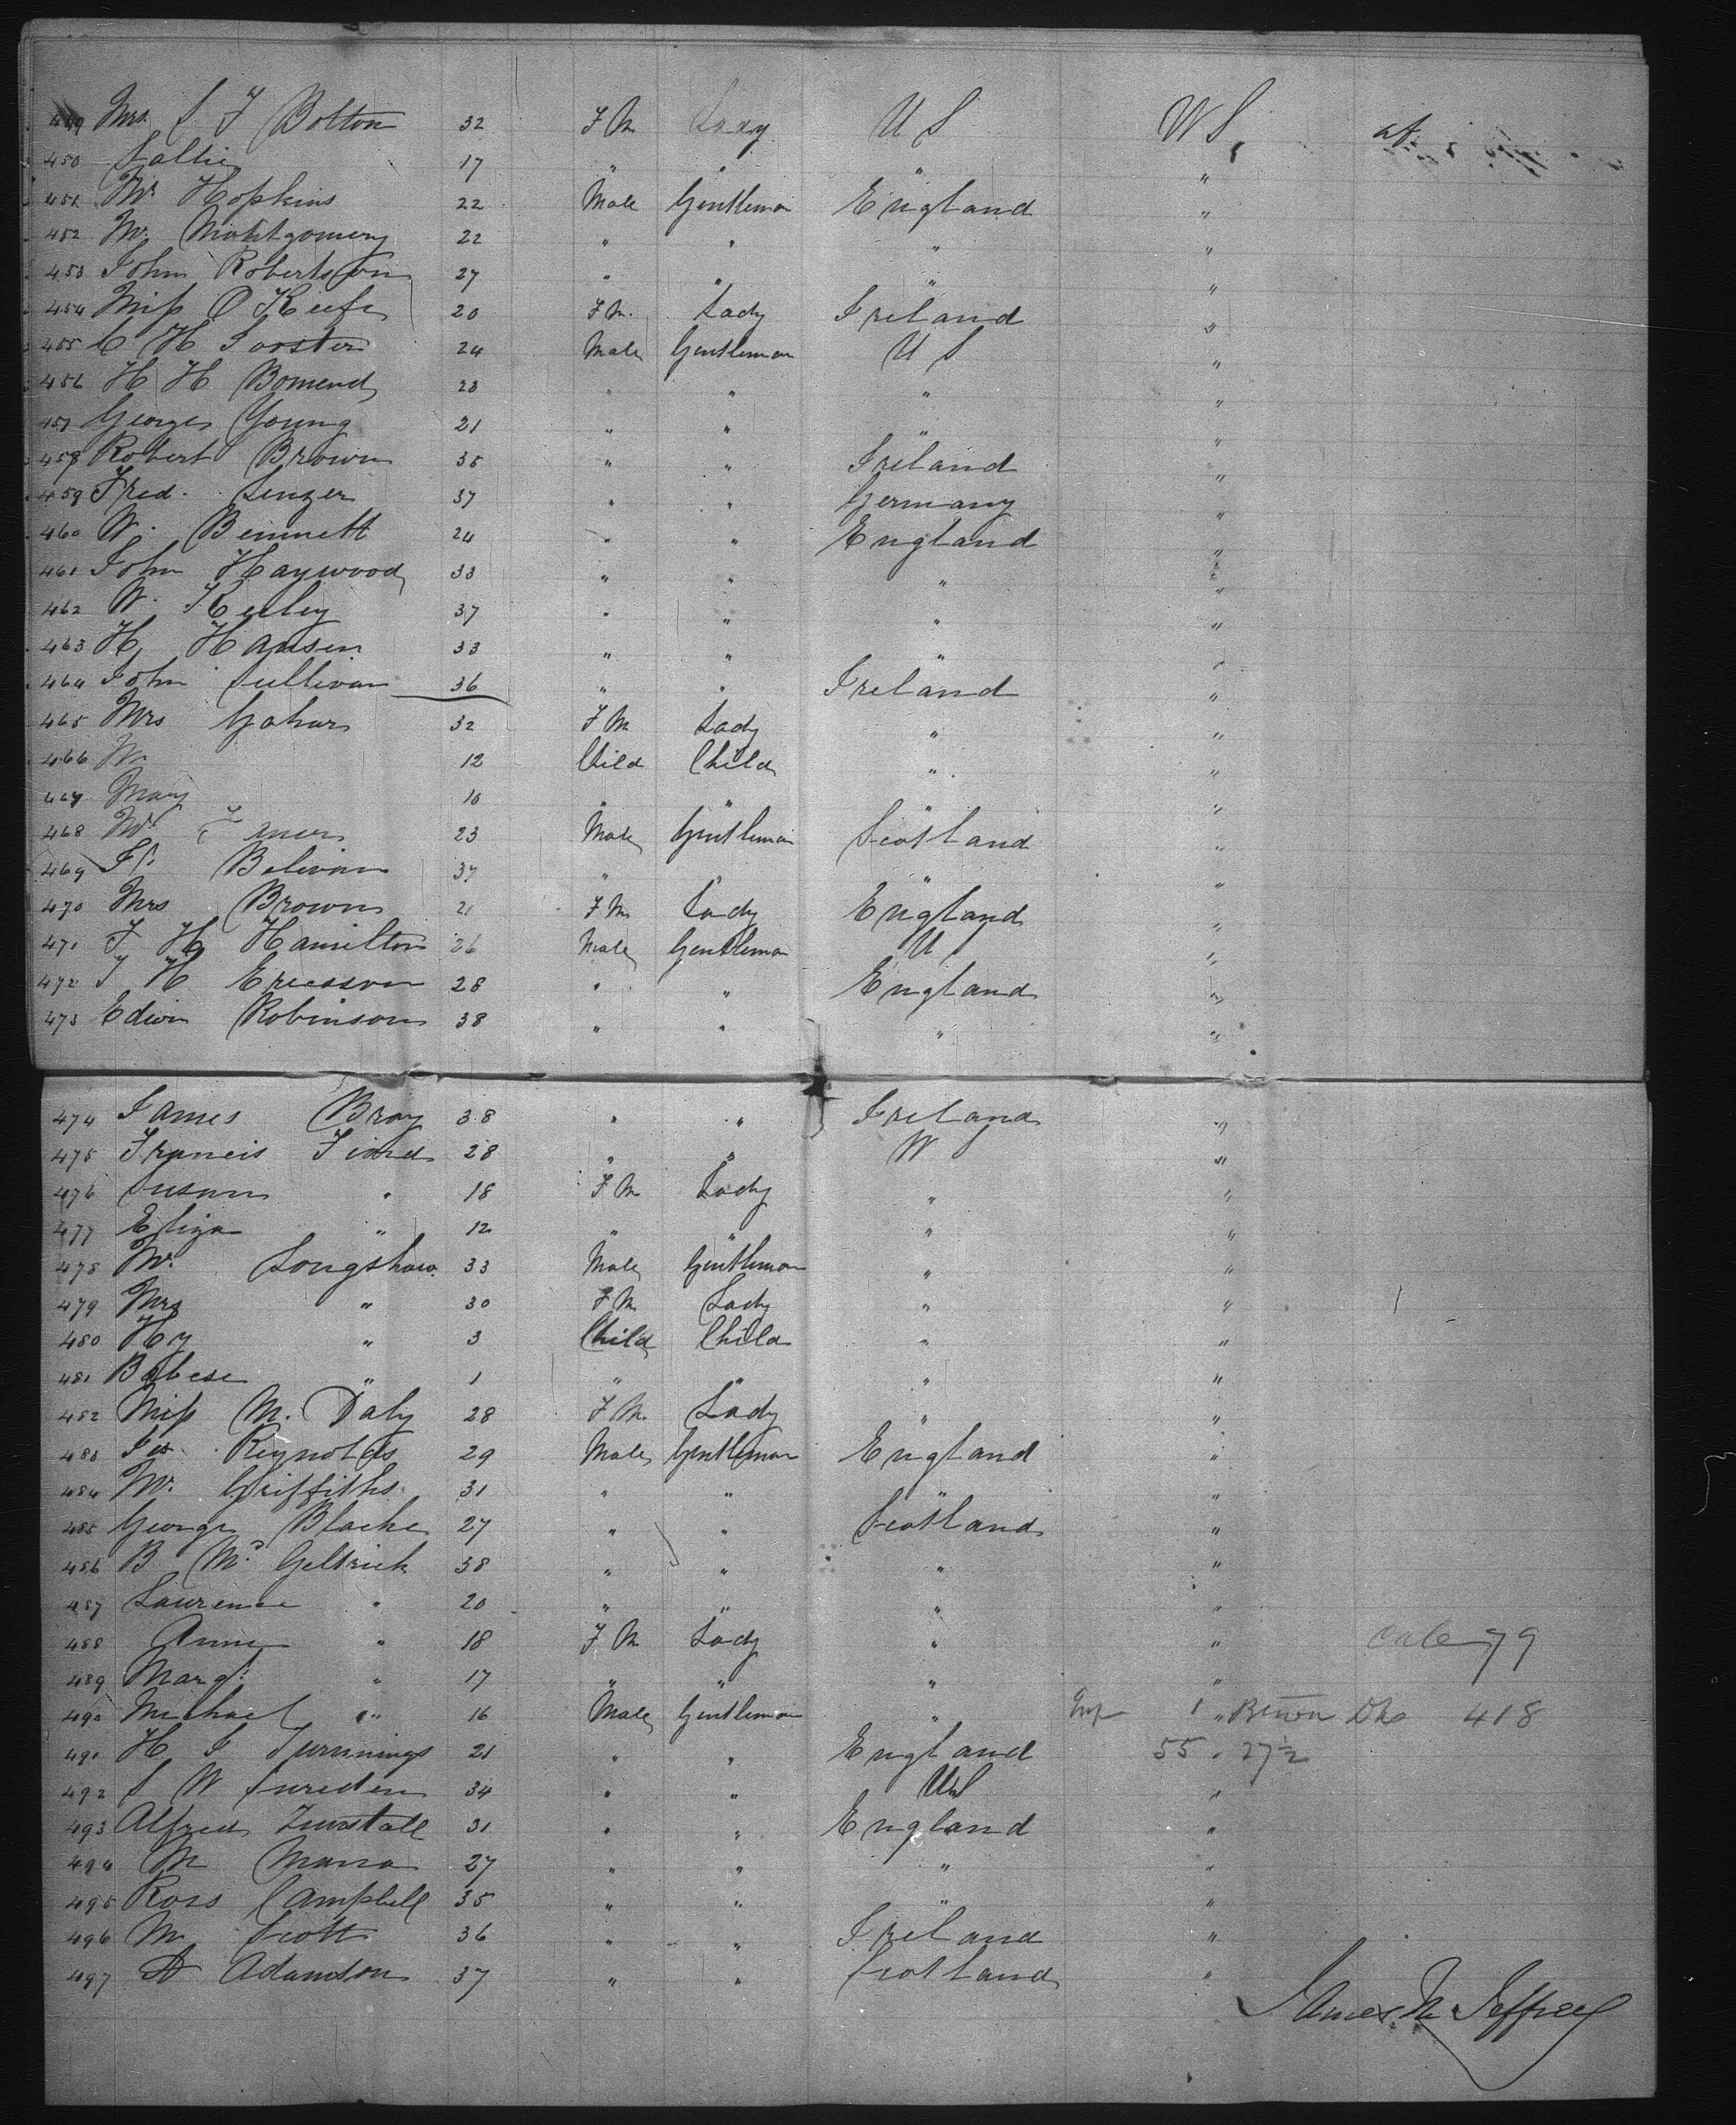 449 Mrs S J Bolton 32 F M Lady U S U S
450 Sallie 17 " " " "
451 Mr Hopkins 22 Male Gentleman England "
452 Mr. Montgomery 22 " " " "
453 John Robertson 27 " " " "
454 Miss O Keefe 20 F M. Lady Ireland "
455 C H Forster 24 Male Gentleman U S "
456 H H Bomend 23 " " " "
457 George Young 21 " " " "
458 Robert Brown 35 " " Ireland "
459 Fred. Senzer 37 " " Germany "
460 W. Bennett 24 " " England "
461 John Haywood 33 " " " "
462 W. Keeley 37 " " " "
463 H. Hansen 33 " " " "
464 John Sullivan 36 " " Ireland "
465 Mrs Gahar 32 F M Lady " "
466 12 Child Child " "
467 Mary 10 " " " "
468 Mr 23 Male Gentleman Scotland "
469 Belivan 37 " " " "
470 Mrs Brown 21 F M Lady England "
471 J H Hamilton 26 Male Gentleman U S "
472 J H Ericsson 28 " " England "
473 Edwin Robinson 38 " " " "
474 James Bray 38 " " Ireland "
475 Francis Fiond 28 " " U S "
476 Susan " 18 F M Lady " "
477 Eliza " 12 " " " "
478 Mr. Longshaw 33 Male Gentleman " "
479 Mrs " 30 F M Lady " "
480 Hy " 3 Child Child " "
481 " 1 " " " "
482 Miss M. Daly 28 F M. Lady " "
483 Jas. Reynolds 29 Male Gentleman England "
484 Mr. Griffiths 31 " " " "
485 George Blacke 27 " " Scotland "
486 B Mc Geltrick 38 " " " "
487 Laurence " 20 " " " "
488 Anne " 18 F M Lady " " 79
489 Margt " 17 " " " "
490 Michael " 16 Male Gentleman " 1 " 418
491 H J Jurnnings 21 " " England 55 " 27½
492 S W Sureden 34 " " U S "
493 Alfred Tunstall 31 " " England "
494 M Mana 27 " " " "
495 Ross Campbell 35 " " " "
496 M Scott 36 " " Ireland "
497 A Adamson 37 " " Scotland "
James N Jeffrey